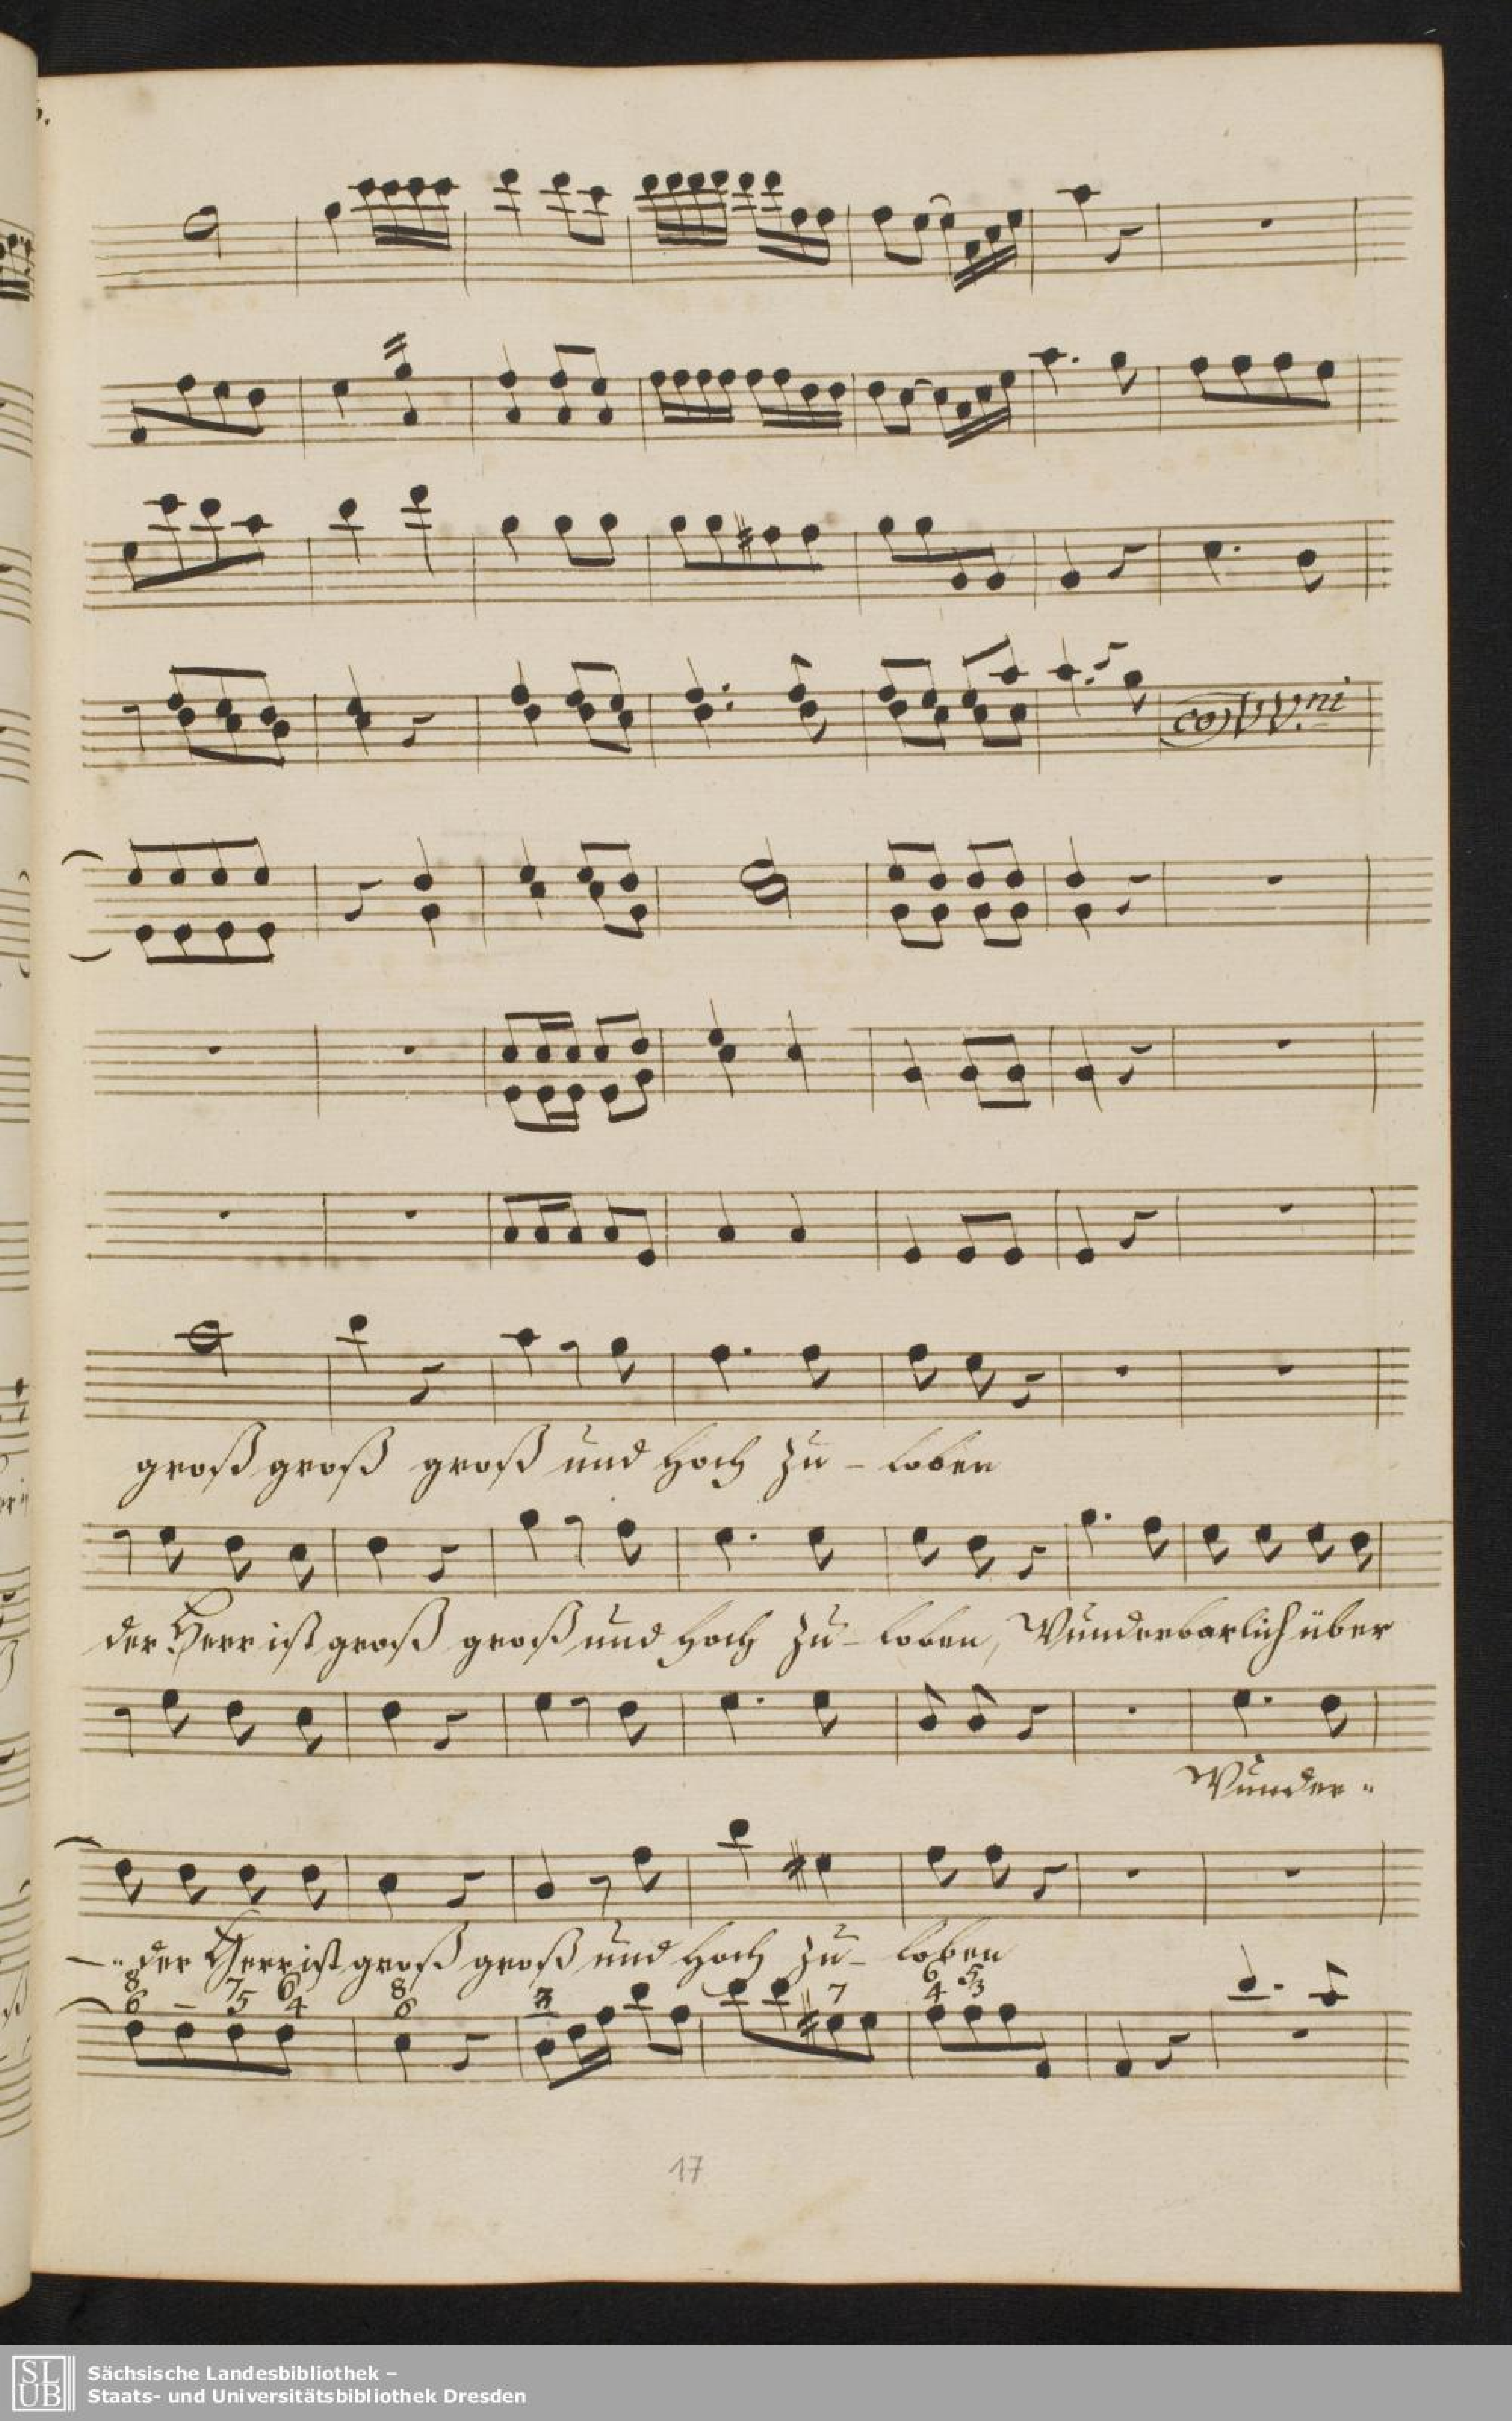 co VV.ni
groß groß groß und hoch zu - loben
der Herr ist groß groß und hoch zu - loben, Wunderbarlich über
Wunder -
der Herr ist groß groß und hoch zu - loben
8 7 6 8 6 5
6 - 5 4 6 7 4 3
17
SLUB
Sächsische Landesbibliothek –
Staats- und Universitätsbibliothek Dresden